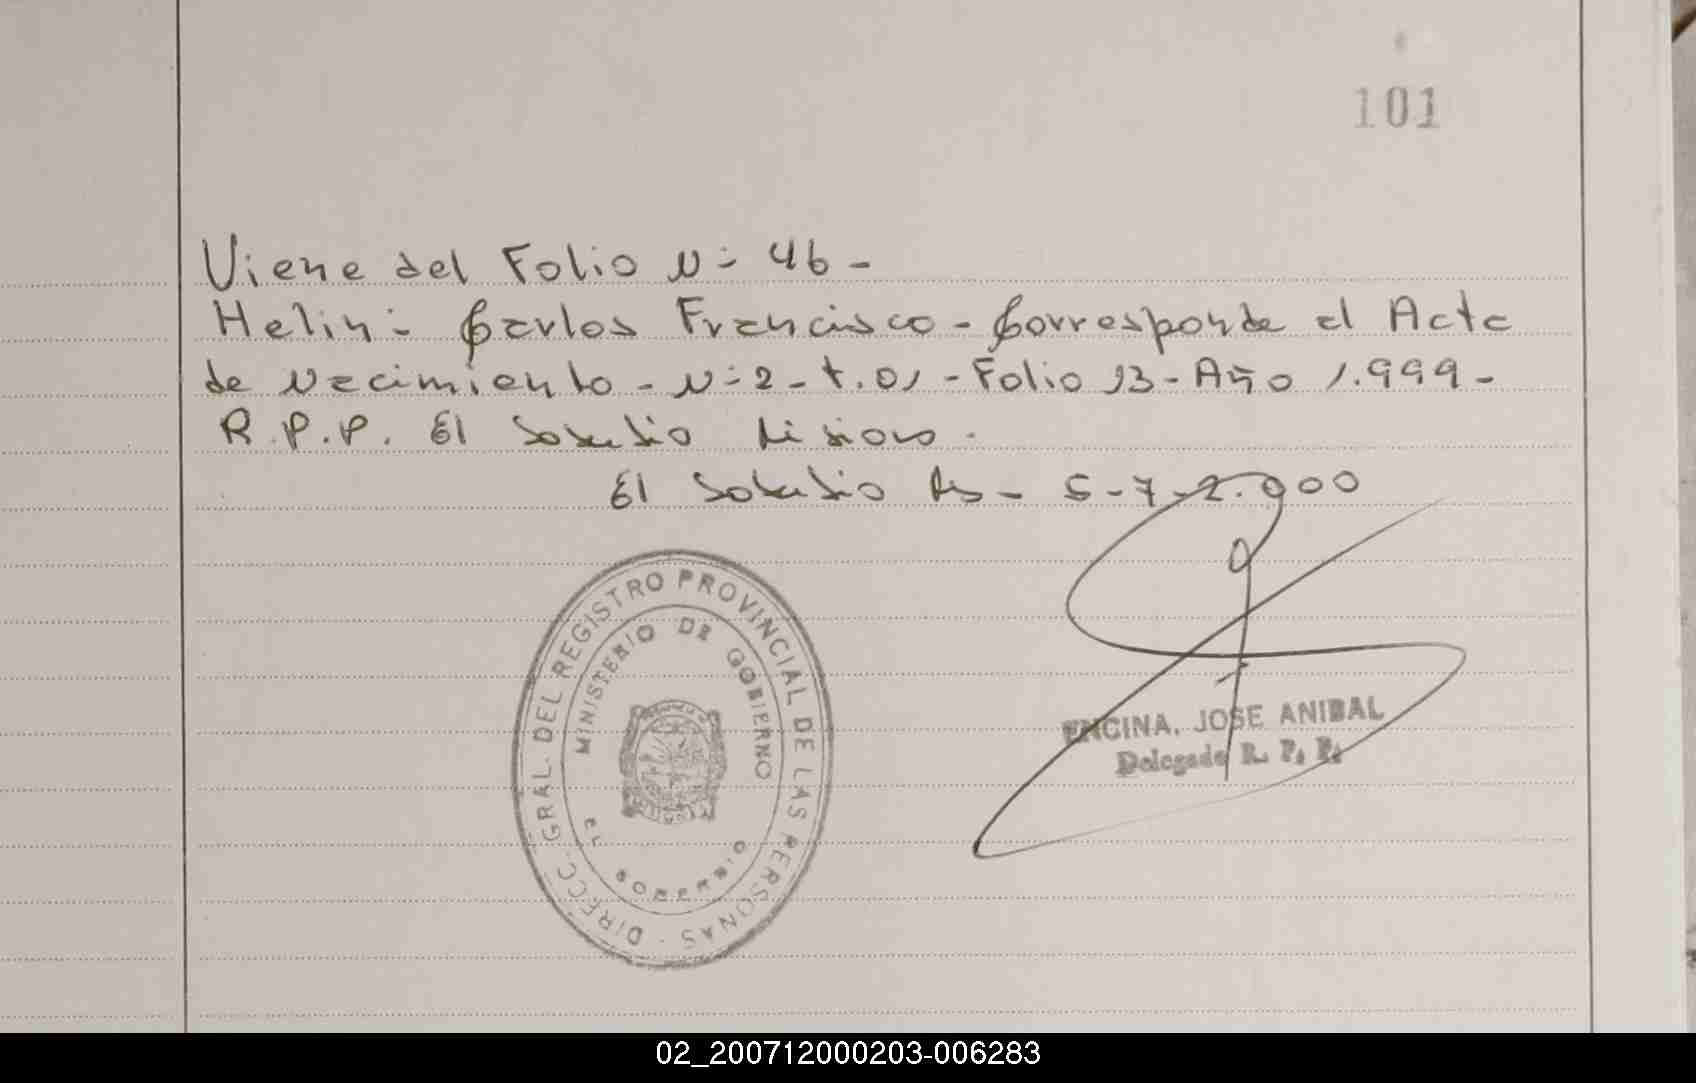 101
Viene del Folio N= 46 -
Helin = Carlos Francisco - Corresponde al Acta
de Nacimiento - N=2 - t. 01 - Folio 13 - Año 1.999 -
R.P.P. El Soberbio Misiones.
El Soberbio Ms - 5-7-2.000
DIRECC. GRAL. DEL REGISTRO PROVINCIAL DE LAS PERSONAS -
MINISTERIO DE GOBIERNO
EL SOBERBIO
ENCINA, JOSE ANIBAL
Delegado R. P. P.
02_200712000203-006283